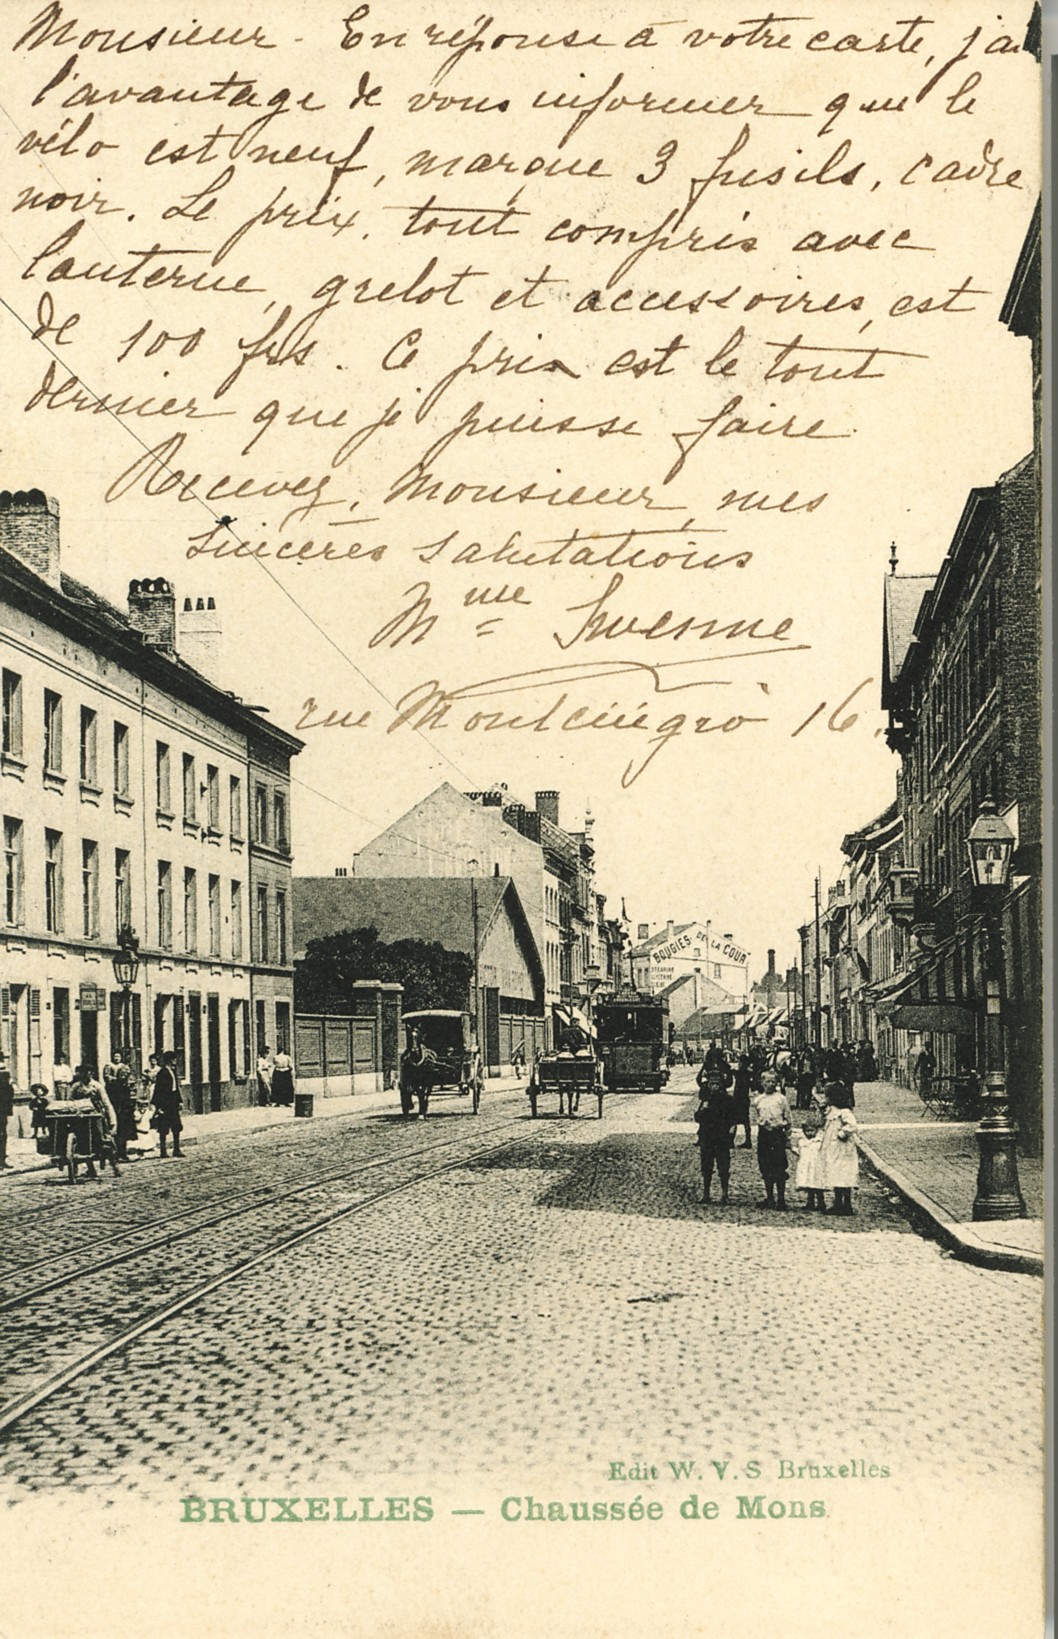 Monsieur - En réponse à votre carte, j'ai
l'avantage de vous informer que le
vélo est neuf, marque 3 fusils, cadre
noir. Le prix, tout compris avec
lanterne, grelot et accessoires, est
de 100 frs. Ce prix est le tout
dernier que je puisse faire
Recevez, Monsieur, mes
sincères salutations
Mme
rue Monténégro 16.
BOUGIES DE LA COUR
Edit W. V. S Bruxelles
BRUXELLES — Chaussée de Mons